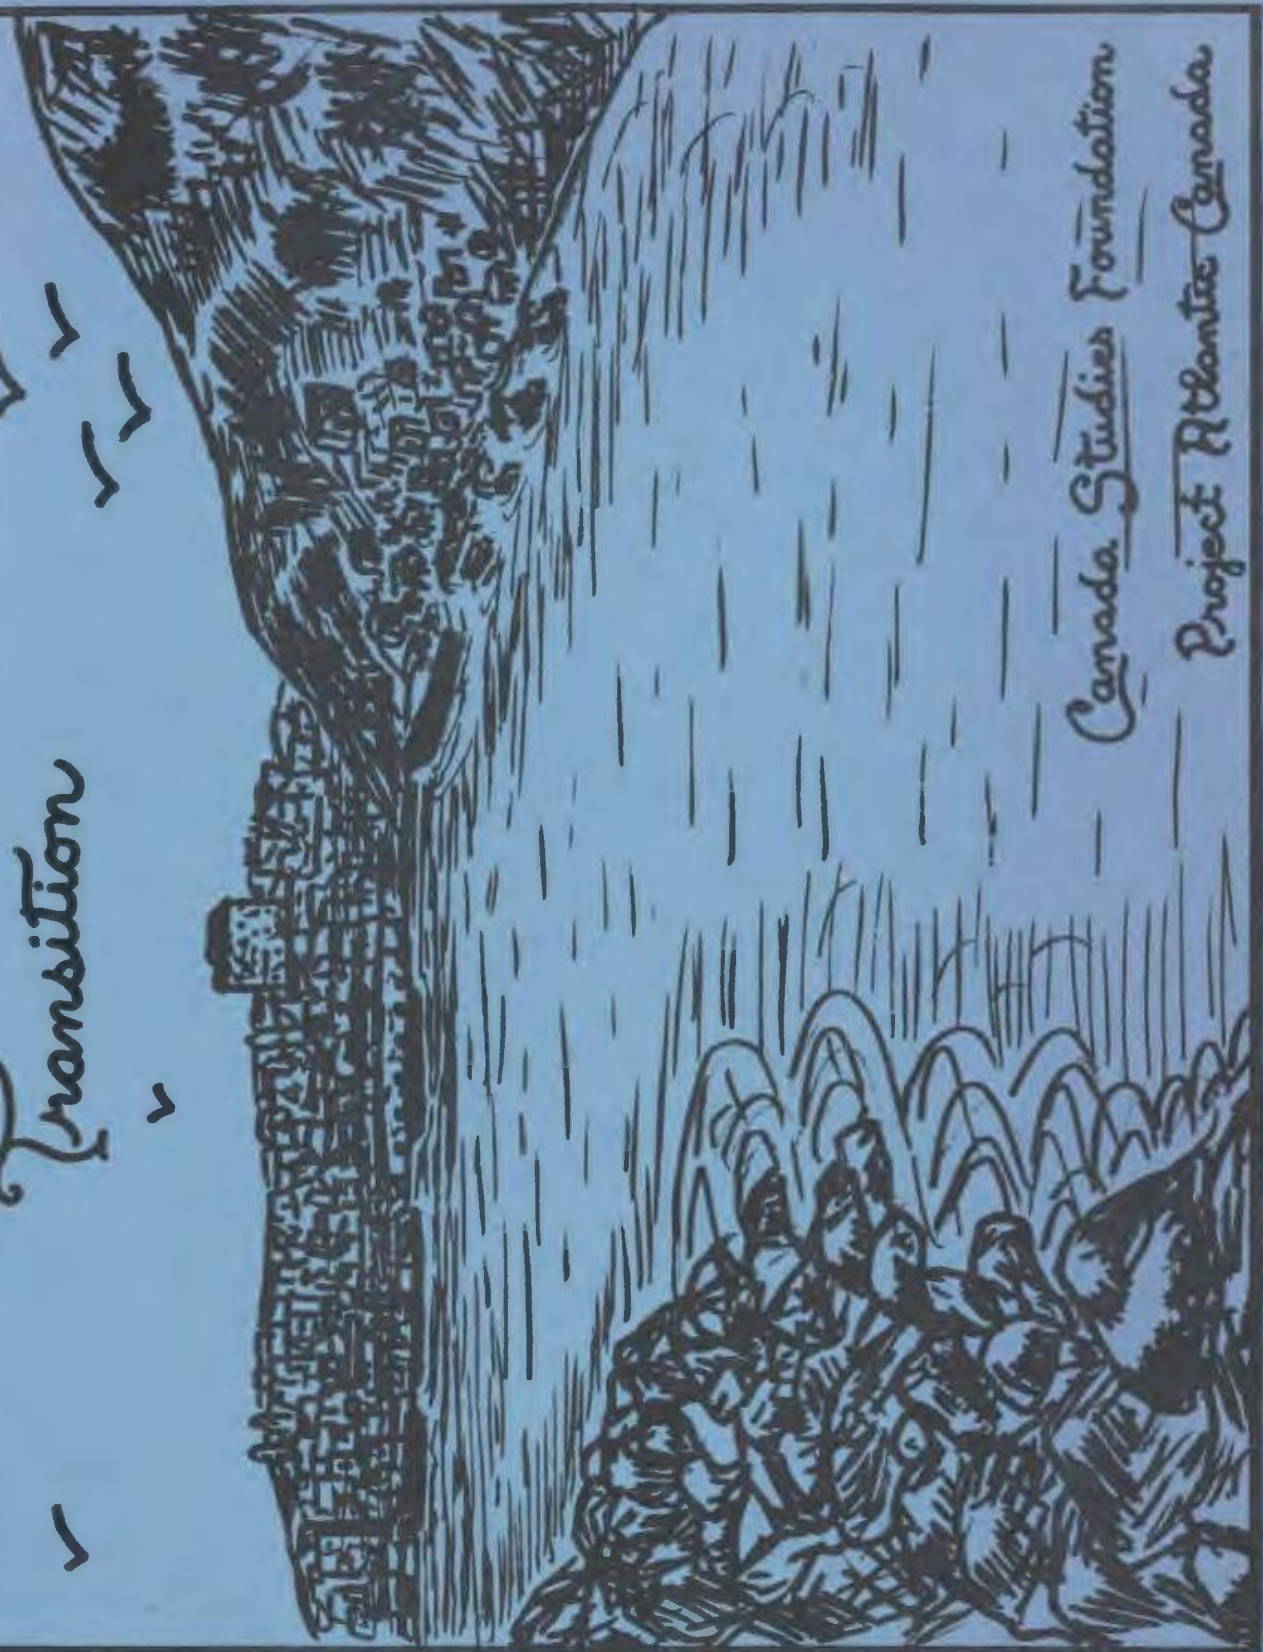 Transition
Canada Studies Foundation
Project Atlantic Canada